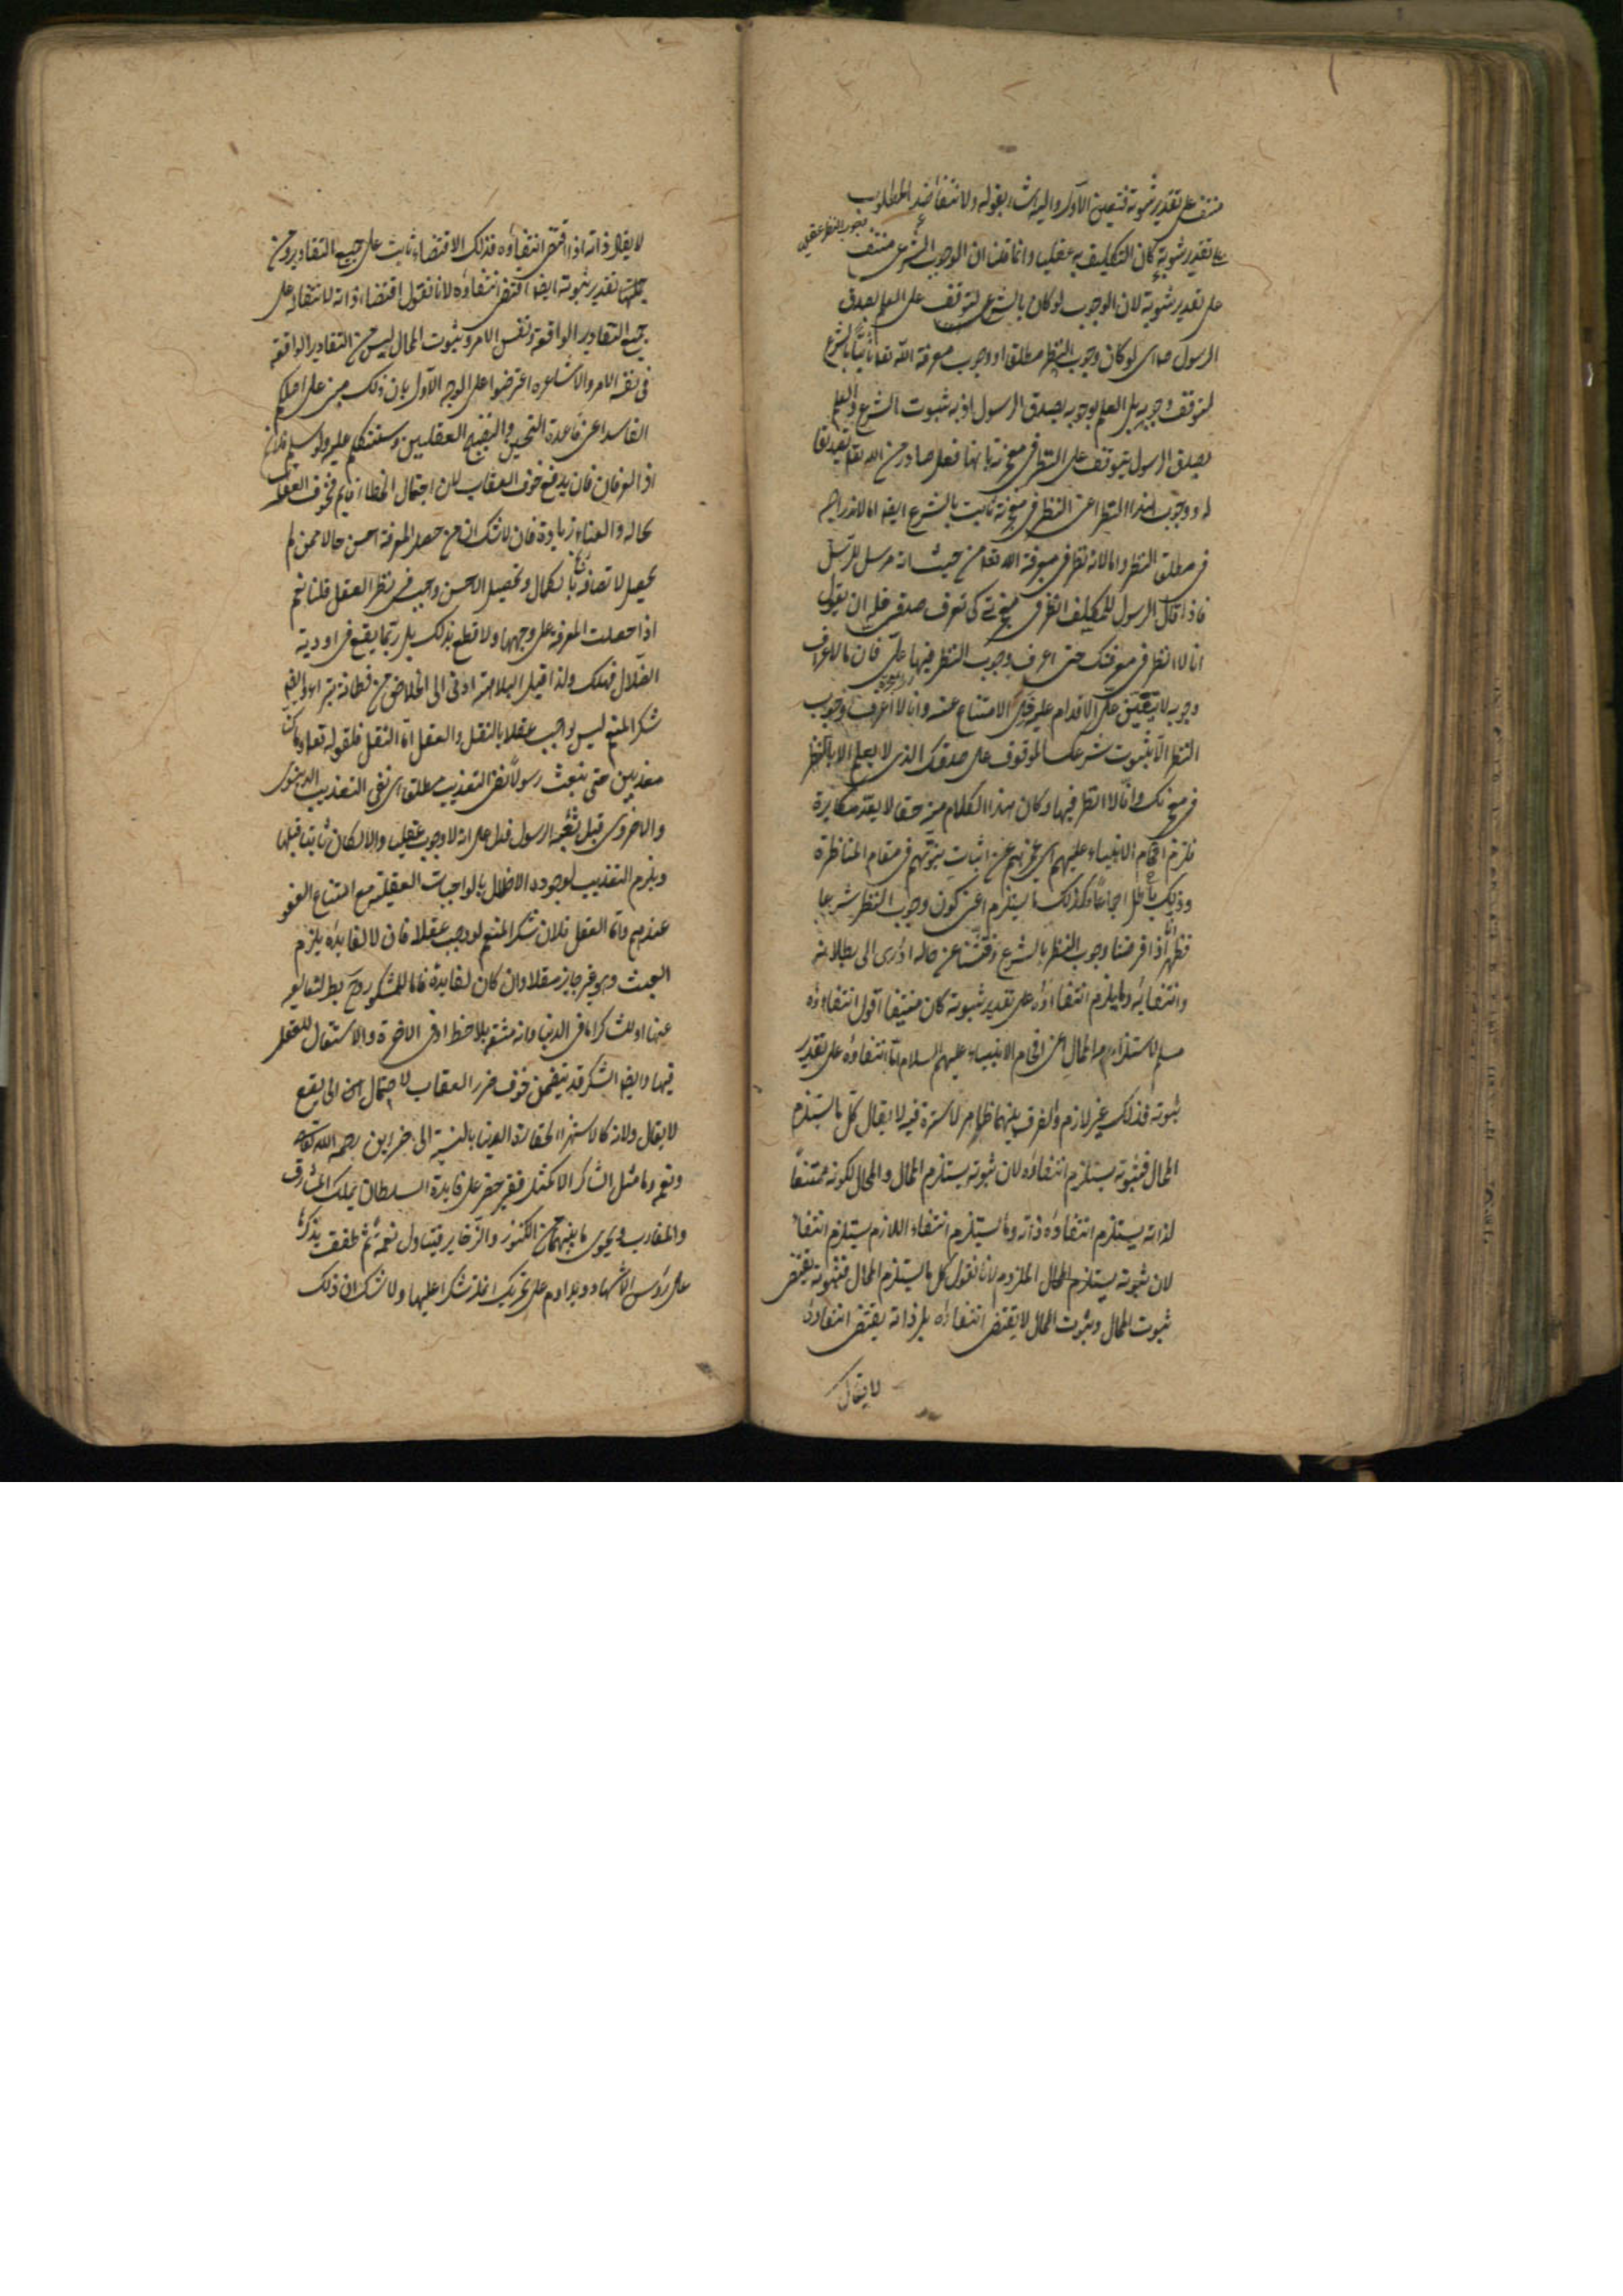 منتف على تقدير ثبوته فتعين الاول واليه اشار بقوله ولانتفاء ضد المطلوب
على تقدير ثبوته كان التكليف به عقليا وانما قلنا ان الوجوب الشرعى منتف
فيجب النظر عقلا
على تقدير ثبوته لان الوجوب لو كان بالشرع لتوقف على العلم بصدق
الرسول اى لو كان وجوب النظر مطلقا او وجوب معرفة الله تعالى ثابتا بالشرع
لتوقف وجوبه بل العلم بوجوبه بصدق الرسول اذ به ثبوت الشرع والعلم
بصدق الرسول يتوقف على النظر فى معجزته بانها فعل صادر من الله تعالى تصديقا
له ووجوب هذا النظر اعنى النظر فى معجزته ثابت بالشرع ايضا اما لاندراجه
فى مطلق النظر واما لانه نظر فى معرفة الله تعالى من حيث انه مرسل للرسل
فاذا قال الرسول للمكلف انظر فى معجزتى كى تعرف صدقى فله ان يقول
انا لا انظر فى معجزتك حتى اعرف وجوب النظر فيها على فان ما لم اعرف
وجوبه لا يتعين على الاقدام عليه الامتناع عنه وانا لا اعرف وجوب
النظر الا بثبوت شرعك الموقوف على صدقك الذى لا يعلم الا بالنظر
فى معجزتك وانا لا انظر فيها وكان هذا الكلام منه حقا لا يعد مكابرة
فلزم افحام الانبياء عليهم اى عجزهم عن اثبات نبوتهم فى مقام المناظرة
وذلك باطل اجماعا وكذلك ما يستلزم اعنى كون وجوب النظر شرعيا
فظهر انا اذا فرضنا وجوب النظر بالشرع وفتشنا عن حاله ادى الى بطلانه
وانتفائه وما يلزم انتفاؤه على تقدير ثبوته كان منتفيا اقول انتفاؤه
مسلم لاستلزامه المحال اعنى افحام الانبياء عليهم السلام اما انتفاؤه على تقدير
ثبوته فذلك غير لازم والفرق بينهما ظاهر لا سترة فيه لا يقال كل ما يستلزم
المحال فثبوته يستلزم انتفاؤه لان ثبوته يستلزم المحال والمحال لكونه ممتنعا
لذاته يستلزم انتفاؤه ذاته وما يستلزم انتفاء اللازم يستلزم انتفاء
لان ثبوته يستلزم المحال الملزوم لانا نقول كل ما يستلزم المحال فثبوته يقتضى
ثبوت المحال وثبوت المحال لا يقتضى انتفاؤه بل ذاته يقتضى انتفاؤه
لا يقال
لا يقال ذاته اذا اقتضى انتفاؤه فذلك الاقتضاء ثابت على جميع التقادير ومن
جملتها تقدير ثبوته ايضا اقتضى انتفاؤه لانا نقول اقتضاء ذاته لانتفائه على
جميع التقادير الواقعة فى نفس الامر وثبوت المحال ليس من التقادير الواقعة
فى نفس الامر والاشاعره اعترضوا على الوجه الاول بان ذلك مبنى على اصلكم
الفاسد اعنى قاعدة التحسين والتقبيح العقليين وسنتكلم عليه ولو سلم فلا نم
ان العرفان يدفع خوف العقاب لان احتمال الخطا قايم فخوف العقاب
بحاله والعناء زيادة فان لا شك ان من حصل المعرفة احسن حالا ممن لم
يحصل لاتصافه بالكمال وتحصيل الاحسن واجب فى نظر العقل قلنا نعم
اذا حصلت المعرفة على وجهها ولا قطع بذلك بل ربما يقع فى اودية
الضلال فيهلك ولذا قيل البلاهة ادنى الى الخلاص من فطانة بتراء وايضا
شكر المنعم ليس بواجب عقلا بالنقل والعقل اما النقل فلقوله تعالى وما كنا
معذبين حتى نبعث رسولا نفى التعذيب مطلقا اى نفى التعذيب الدنيوى
والاخروى قبل بعثة الرسول فدل على انه لا وجوب عقليا والا لكان ثابتا قبلها
ويلزم التعذيب لوجود الاخلال بالواجبات العقلية مع امتناع العفو
عندهم واما العقل فلان شكر المنعم لو وجب عقلا فان لا لفايدة يلزم
العبث وهو غير جايز عقلا وان كان لفايدة فاما للمشكور وهو بط لتعاليه
عنها او للشاكر اما فى الدنيا وانه مشقة بلا حظ او فى الاخرة ولا استقلال للعقل
فيها وايضا الشكر قد يتضمن خوف ضرر العقاب لاحتمال ان لا يقع
لا يقال ولانه كالاستهزاء لحقارة الدنيا بالنسبة الى خزاين رحمة الله تعالى
ونعمه وما مثل الشاكر الا كمثل فقير حضر على مايدة السلطان يملك المشارق
والمغارب ويحوى ما بينهما من الكنوز والذخاير فيتناول لقمة ثم طفقت يذكرها
على رؤس الاشهاد ويداوم على تحريك انملة شكرا عليها ولا شك ان ذلك